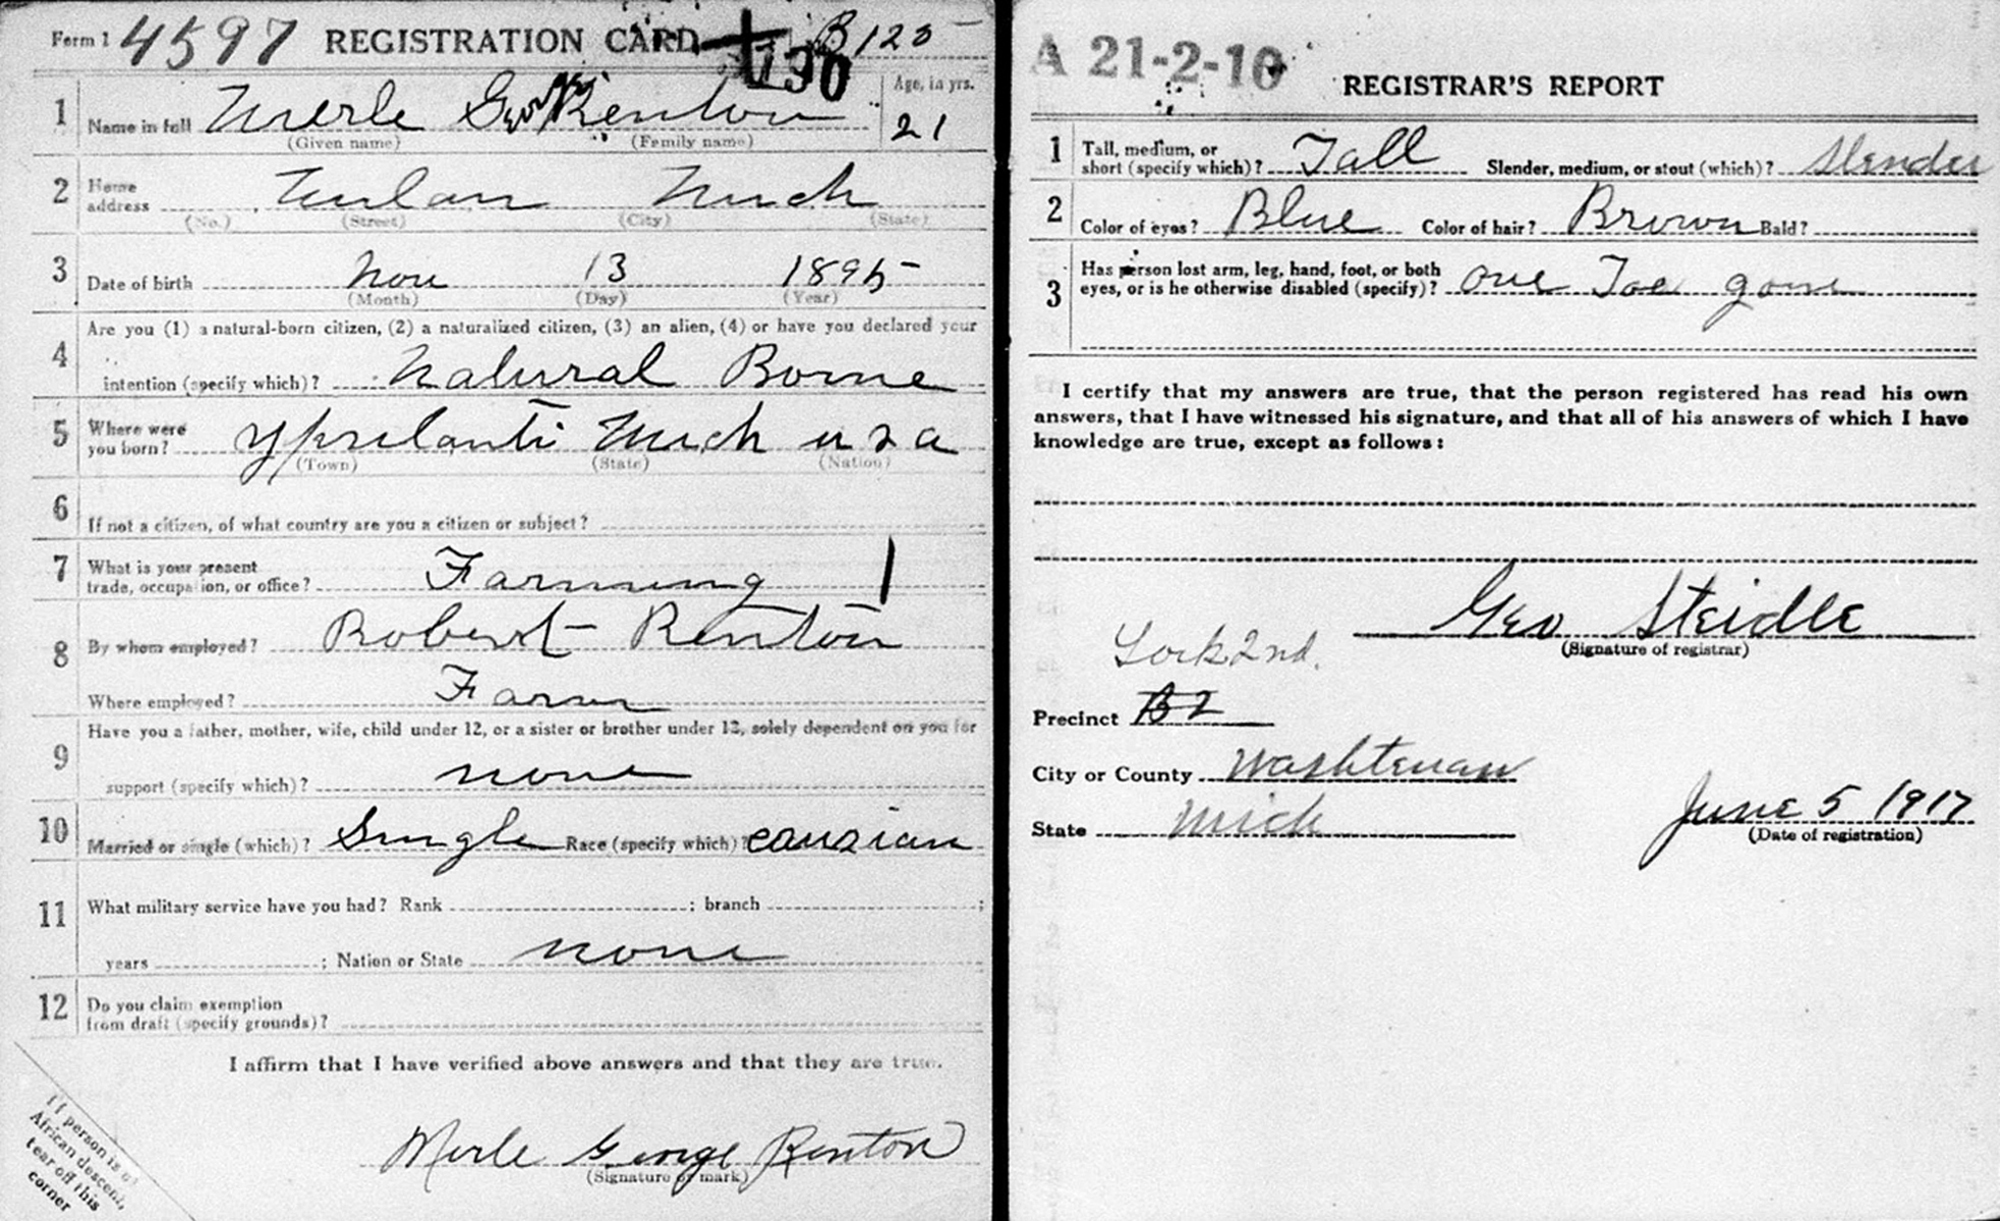 Form 1 4597 REGISTRATION CARD B 125
130
1 Name in full Merle Geo Renton Age, in yrs.
(Given name) (Family name) 21
2 Home address Milan Mich
(No.) (Street) (City) (State)
3 Date of birth Nov 13 1895
(Month) (Day) (Year)
Are you (1) a natural-born citizen, (2) a naturalized citizen, (3) an alien, (4) or have you declared your
4 intention (specify which)? Natural Borne
5 Where were you born? Ypsilanti Mich U S A
(Town) (State) (Nation)
6 If not a citizen, of what country are you a citizen or subject?
7 What is your present
trade, occupation, or office? Farming
8 By whom employed? Robert Renton
Where employed? Farm
Have you a father, mother, wife, child under 12, or a sister or brother under 12, solely dependent on you for
9 support (specify which)? none
10 Married or single (which)? Single Race (specify which)?
11 What military service have you had? Rank ; branch ;
years ; Nation or State none
12 Do you claim exemption
from draft (specify grounds)?
I affirm that I have verified above answers and that they are true.
Merle George Renton
(Signature or mark)
If person is of
African descent,
tear off this
corner
A 21-2-10
REGISTRAR'S REPORT
1 Tall, medium, or
short (specify which)? Tall Slender, medium, or stout (which)? Slender
2 Color of eyes? Blue Color of hair? Brown Bald?
Has person lost arm, leg, hand, foot, or both
3 eyes, or is he otherwise disabled (specify)? one Toe gone
I certify that my answers are true, that the person registered has read his own
answers, that I have witnessed his signature, and that all of his answers of which I have
knowledge are true, except as follows:
Geo Steidle
(Signature of registrar)
York 2nd.
Precinct
City or County Washtenaw
State Mich June 5 1917
(Date of registration)